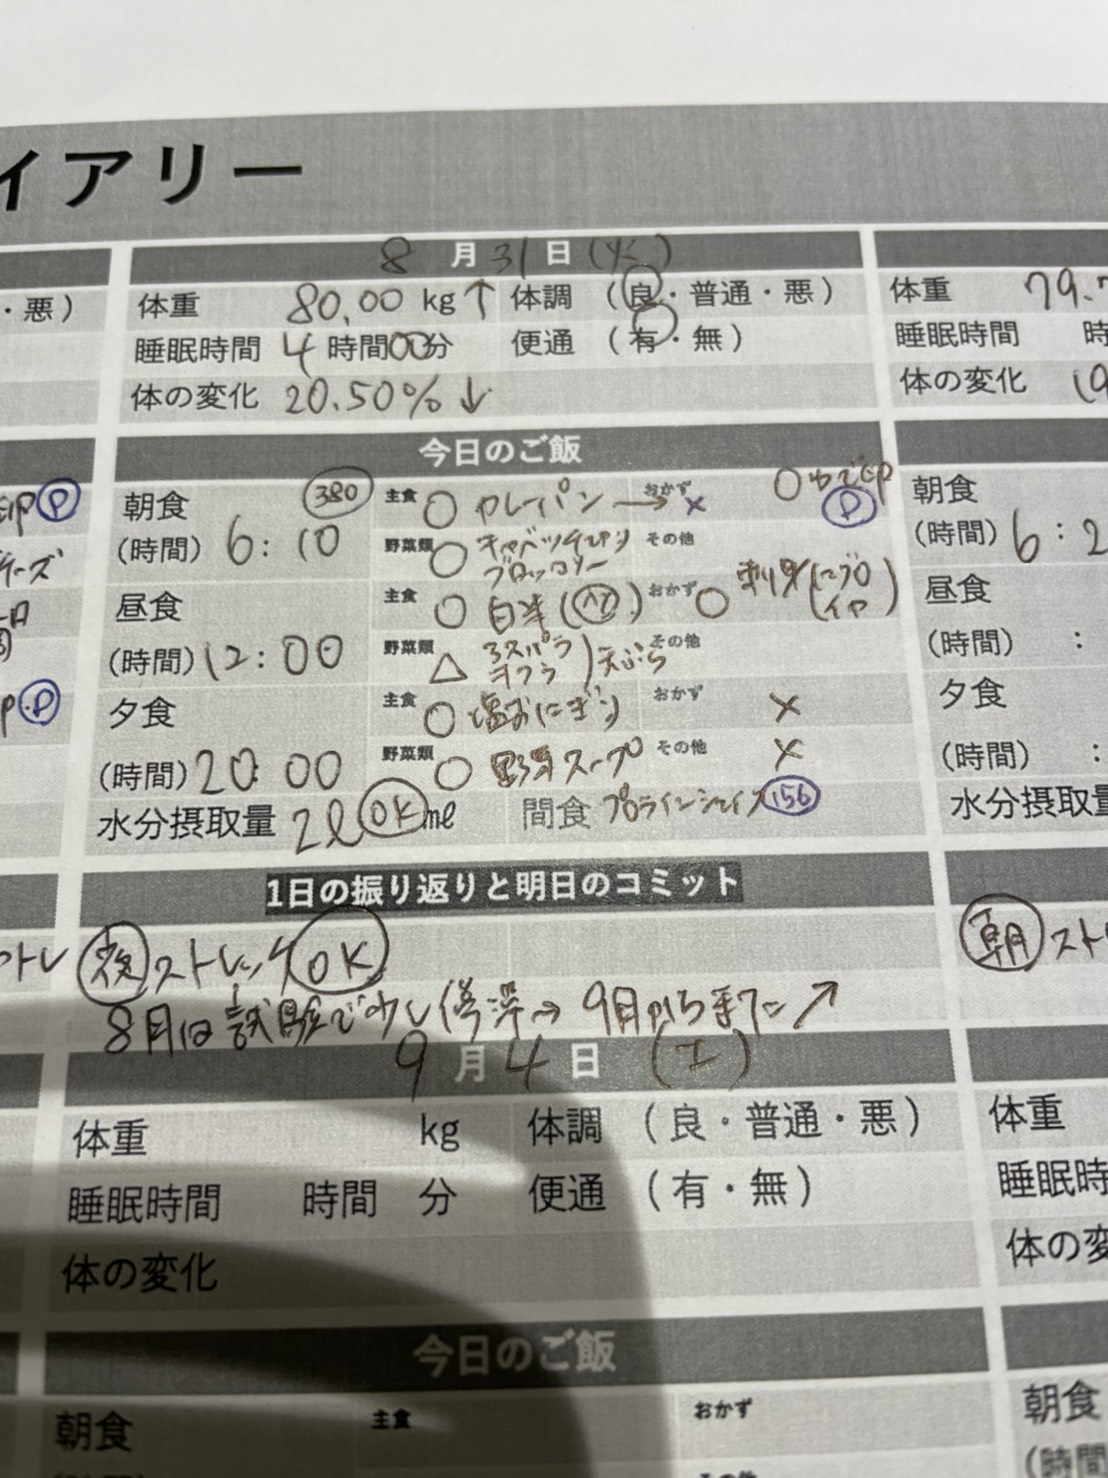 イアリー
8月31日(火)
・悪)
体重 80.00 kg↑ 体調 (良・普通・悪)
体重 79.7
睡眠時間 4時間00分 便通 (有・無)
睡眠時間 時
体の変化 20.50%↓
体の変化
今日のご飯
P
朝食 380
主食 ○ カレーパン → おかず × ○ ゆで卵 P
朝食
(時間) 6:10
野菜類 ○ キャベツ千切り その他
ブロッコリー
(時間) 6:2
チーズ
昼食
主食 ○ 白米 おかず ○ 刺身
昼食
(時間) 12:00
野菜類 △ アスパラ その他
オクラ ) 天ぷら
(時間) :
P
夕食
主食 ○ 塩おにぎり おかず ×
夕食
(時間) 20:00
野菜類 ○ 野菜スープ その他 ×
(時間) :
水分摂取量 2ℓ OK ㎖ 間食 プロテインシェイク 156
水分摂取量
1日の振り返りと明日のコミット
夜 ストレッチ OK
朝 スト
8月は試験で少し停滞→ 9月からまた↗
9月4日(土)
体重 kg 体調 (良・普通・悪)
体重
睡眠時間 時間 分 便通 (有・無)
睡眠時
体の変化
体の変
今日のご飯
朝食 主食 おかず
朝食
その他
(時間